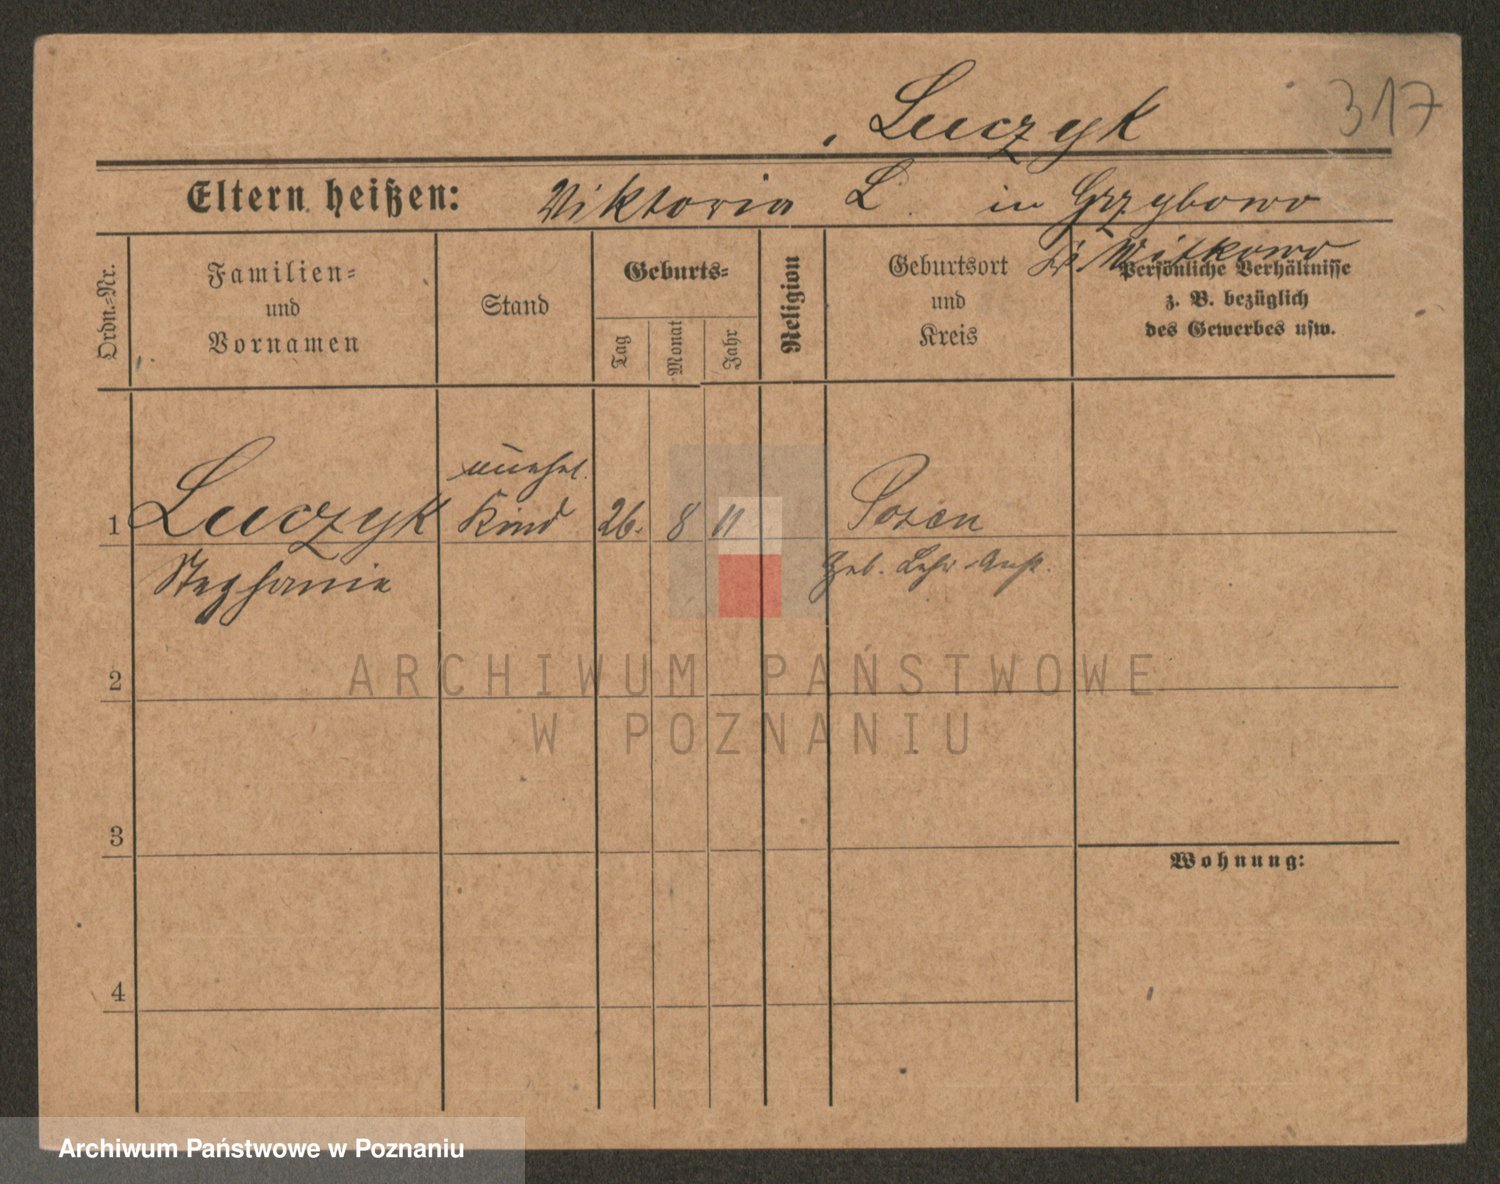 317
Luczyk
Eltern heißen: Viktoria L. in Grzybowo
Kr. Witkowo
Ordn.-Nr.
Familien-
und
Vornamen
Stand
Geburts-
Tag
Monat
Jahr
Religion
Geburtsort
und
Kreis
Persönliche Verhältnisse
z. B. bezüglich
des Gewerbes usw.
1 Luczyk unehel. Kind 26. 8 11 Posen
Stephanie Heb. Lehr-Anst.
2
3
4
Wohnung:
ARCHIWUM PAŃSTWOWE
W POZNANIU
Archiwum Państwowe w Poznaniu